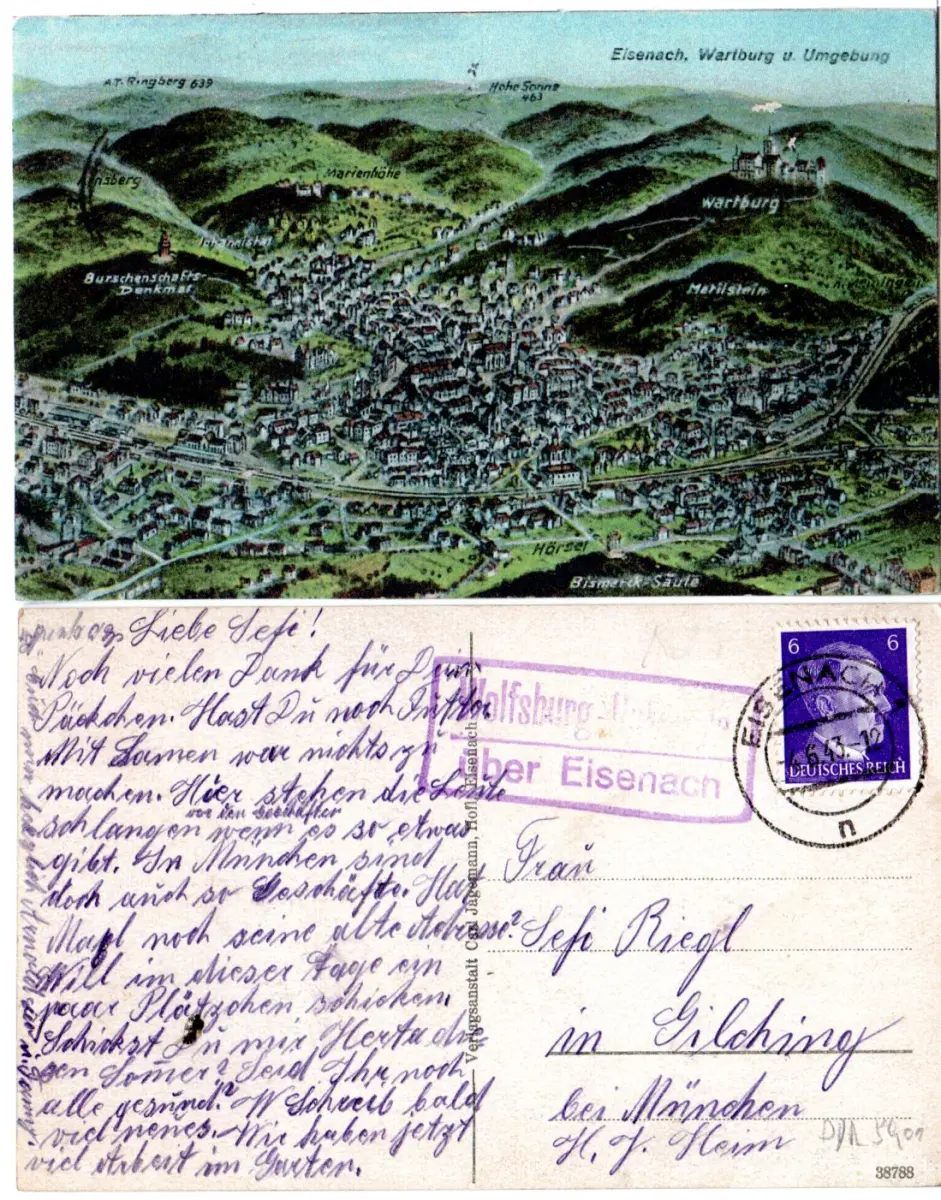 Eisenach, Wartburg u. Umgebung
A.T. Ringberg 639
Hohe Sonne
463
Marienhöhe
Wartburg
Johannistal
Burschenschafts-
Denkmal
Metilstein
Hörsel
Bismarck-Säule
Liebe Sefi!
Noch vielen Dank für Dein
Päckchen. Hast Du noch Futter
Mit Samen war nichts zu
machen. Hier stehen die Leute
vor den Geschäften
schlangen wenn es so etwas
gibt. In München sind
doch auch so Geschäfte. Hat
noch seine alte Adresse?
Will im dieser Tage ein
paar Plätzchen schicken.
Schickst Du mir Herta
den Somer? Seid Ihr noch
alle gesund? Schreib bald
viel neues. Wir haben jetzt
viel Arbeit im Garten.
Wolfsburg
über Eisenach
Verlagsanstalt Carl Jagemann, Hofl. Eisenach
6 6
DEUTSCHES REICH
EISENACH
6.43.-12
n
Frau
Sefi Riegl
in Gilching
bei München
H. J. Heim
38788